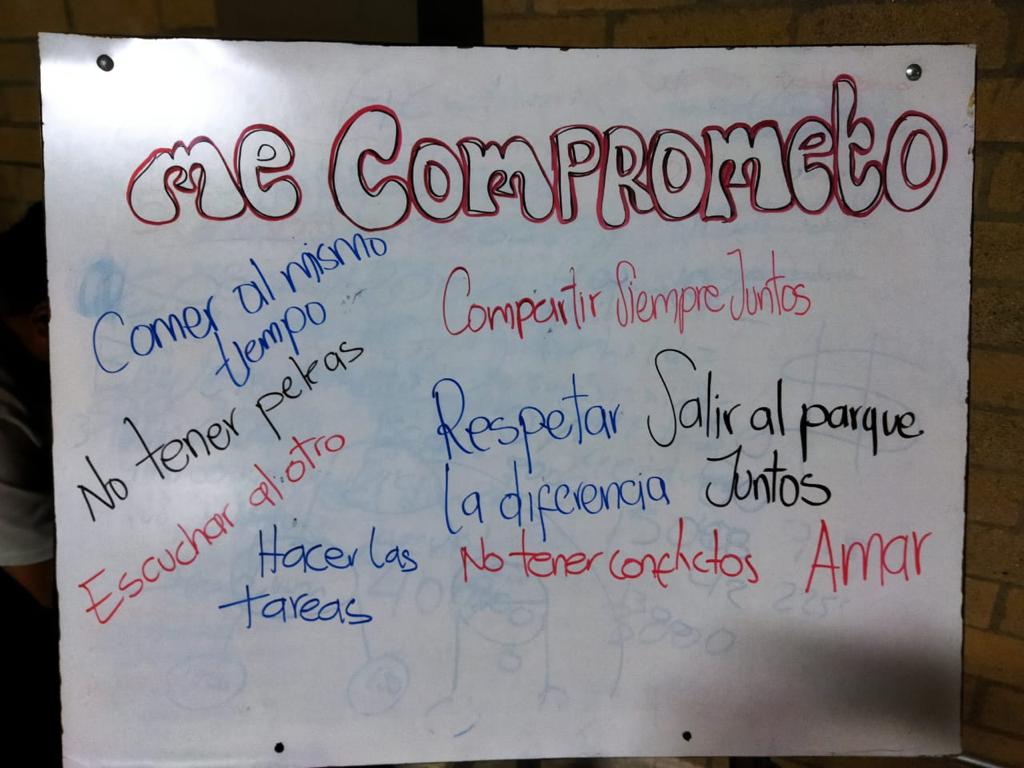 me Comprometo
Comer al mismo
tiempo
No tener peleas
Escuchar al otro
Hacer las
tareas
Compartir Siempre Juntos
Respetar
la diferencia
Salir al parque
Juntos
No tener conflictos
Amar